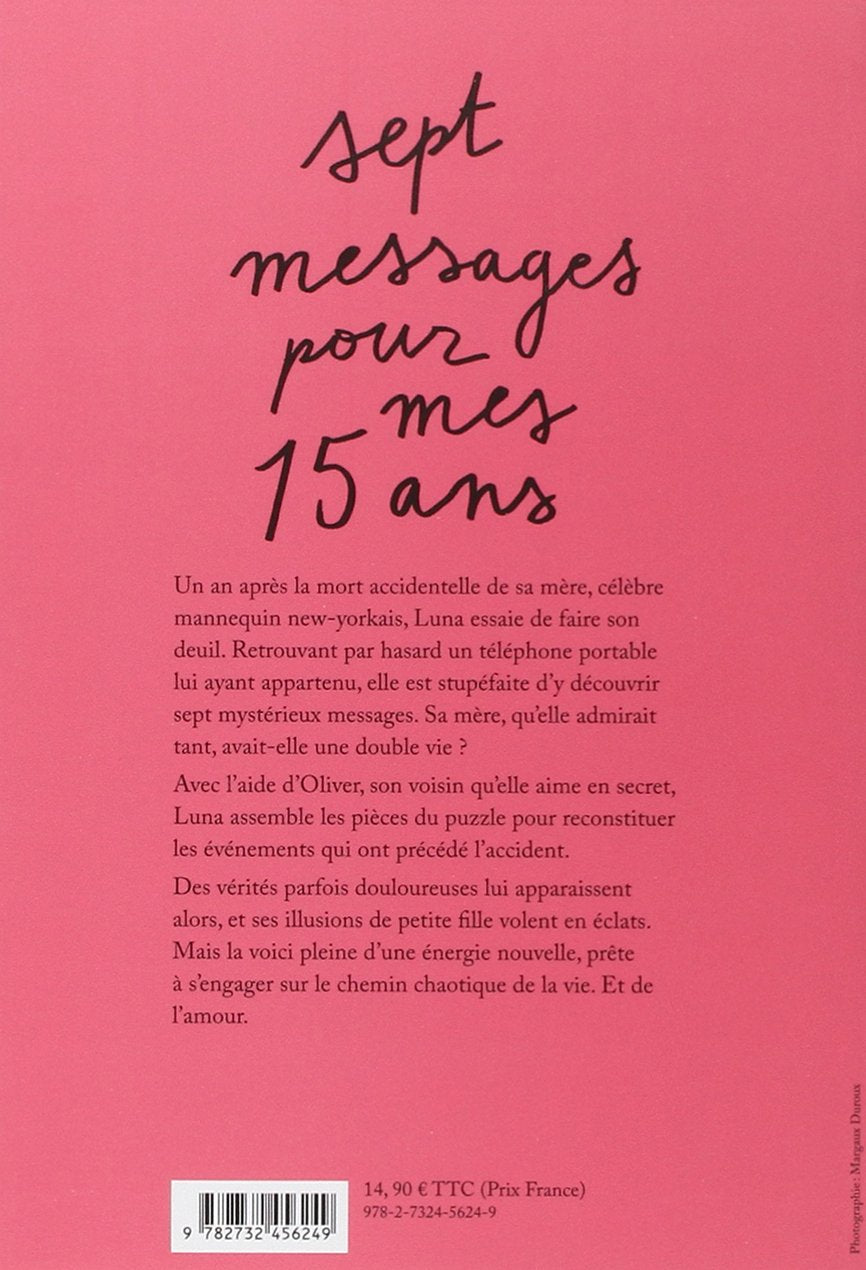 sept
messages
pour
mes
15 ans
Un an après la mort accidentelle de sa mère, célèbre
mannequin new-yorkais, Luna essaie de faire son
deuil. Retrouvant par hasard un téléphone portable
lui ayant appartenu, elle est stupéfaite d’y découvrir
sept mystérieux messages. Sa mère, qu’elle admirait
tant, avait-elle une double vie ?
Avec l’aide d’Oliver, son voisin qu’elle aime en secret,
Luna assemble les pièces du puzzle pour reconstituer
les événements qui ont précédé l’accident.
Des vérités parfois douloureuses lui apparaissent
alors, et ses illusions de petite fille volent en éclats.
Mais la voici pleine d’une énergie nouvelle, prête
à s’engager sur le chemin chaotique de la vie. Et de
l’amour.
14, 90 € TTC (Prix France)
978-2-7324-5624-9
9 782732 456249
Photographie : Margaux Duroux